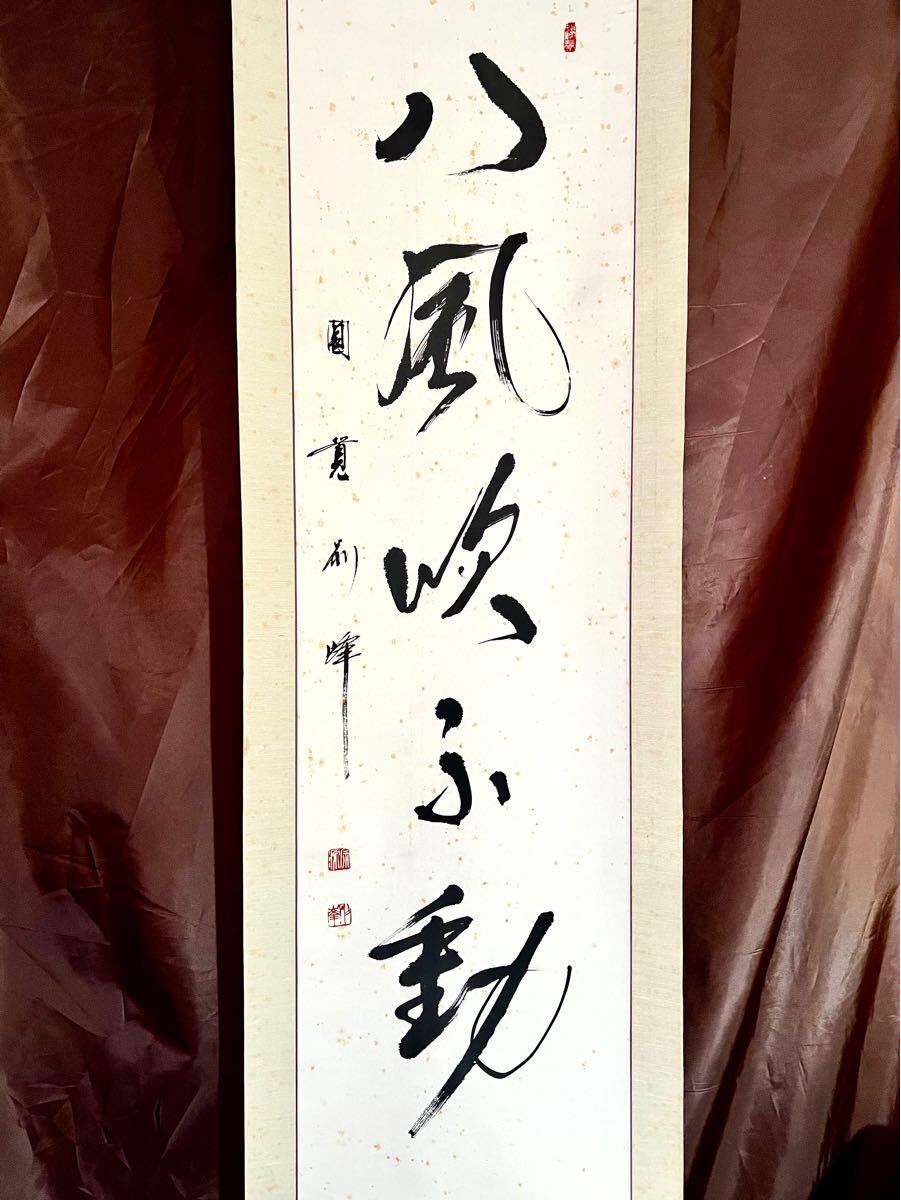 八風吹不動
圓覚別峰